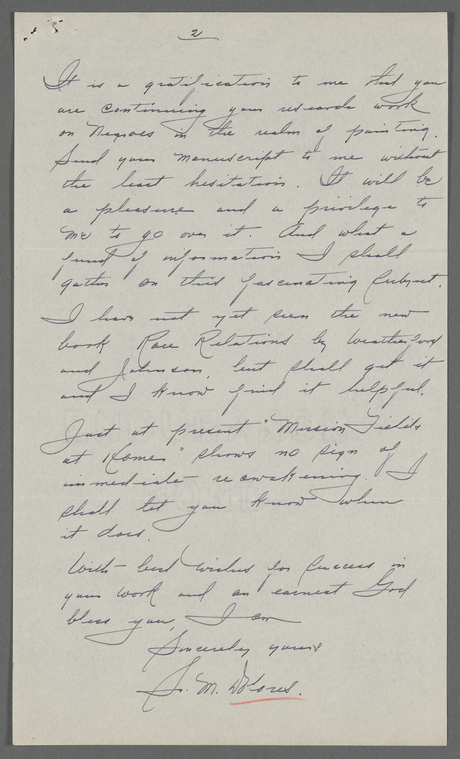 2
It is a gratification to me that you
are continuing your research work
on Negroes in the realm of painting.
Send your manuscript to me without
the least hesitation. It will be
a pleasure and a privilege to
me to go over it. And what a
fund of information I shall
gather on this fascinating subject.
I have not yet seen the new
book Race Relations by Weatherford
and Johnson, but shall get it
and I know find it helpful.
Just at present "Mission Fields
at Home" shows no sign of
immediate reawakening. I
shall let you know when
it does.
With best wishes for success in
your work and an earnest God
bless you, I am
Sincerely yours
Sr. M. Dolores.